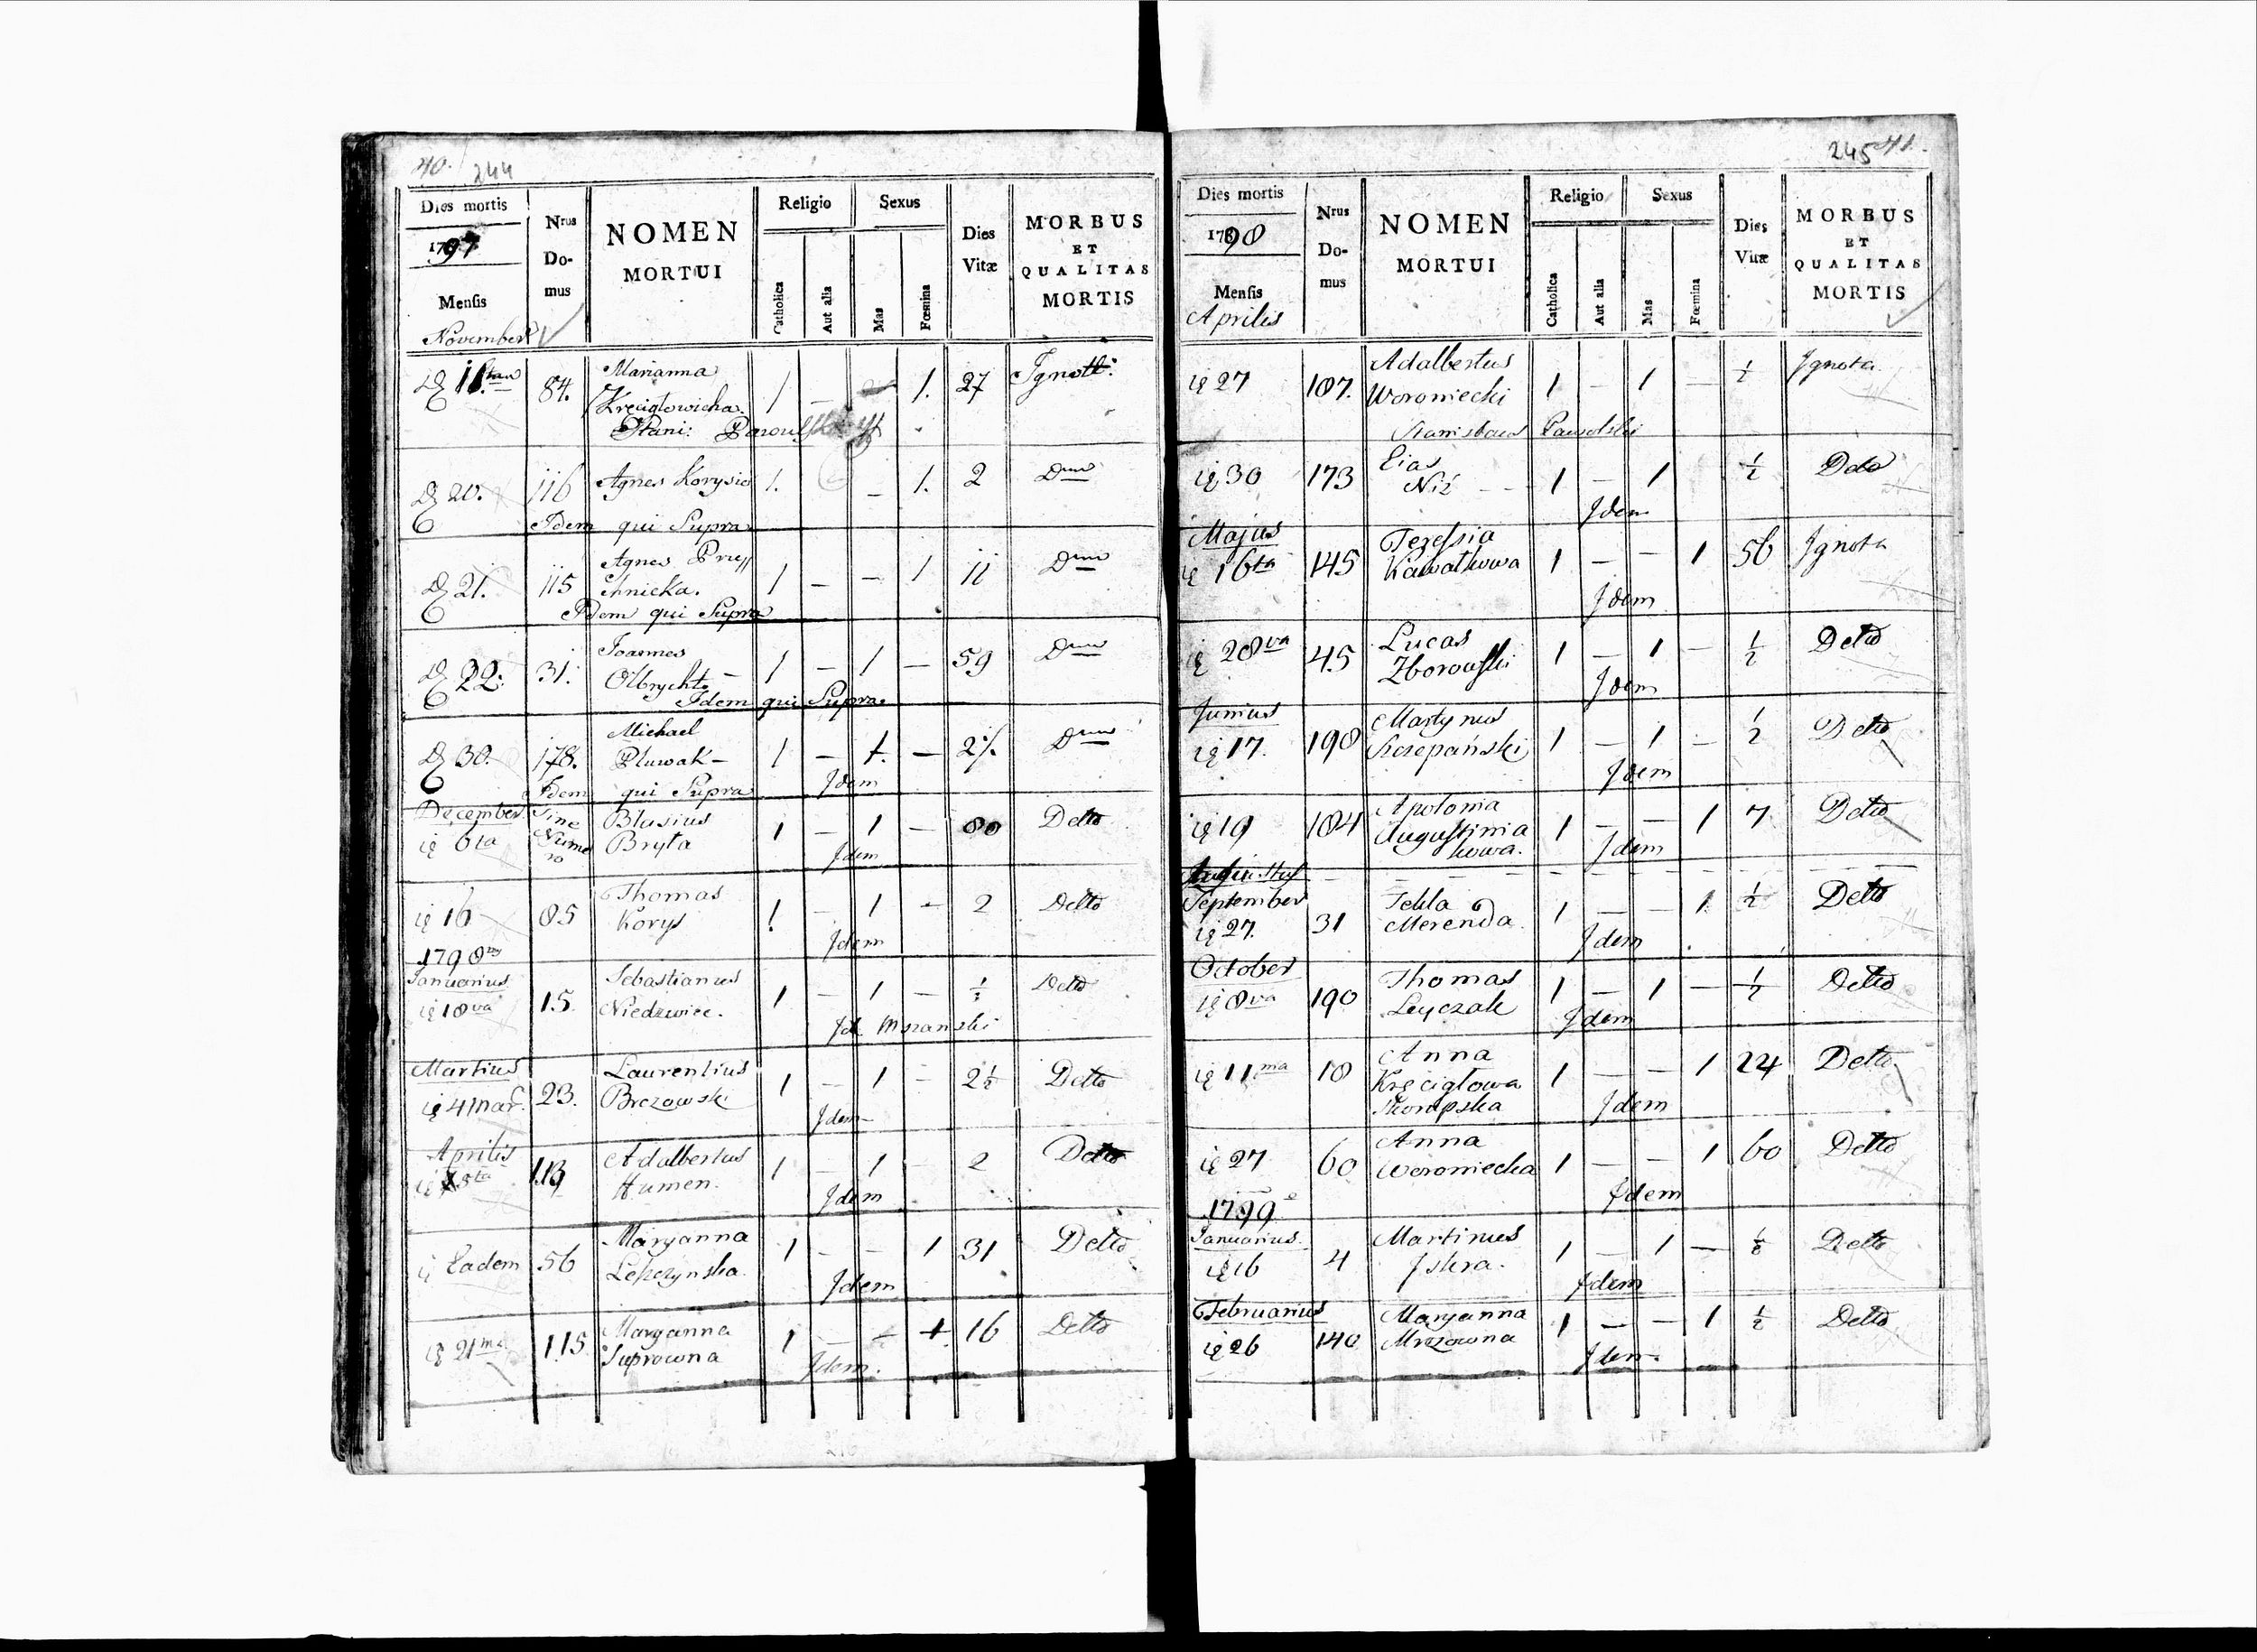 40. 244
Dies mortis
1797
Mensis
November
Nrus Do- mus
NOMEN MORTUI
Religio
Catholica
Aut alia
Sexus
Mas
Fœmina
Dies Vitæ
MORBUS ET QUALITAS MORTIS
84. Marianna 1 – 1. 27 Ignoti:
Kręcigłowicha.
Stani:
20. 116 Agnes Korysio 1. – 1. 2 Dtto
Idem qui Supra
21. 115 Agnes 1 – – 1 11 Dtto
Idem qui Supra
22. 31. Joannes 1 – 1 – 59 Dtto
Olbrycht –
Idem qui Supra.
30. 178. Michael 1 – 1. – 2 Dtto
Pluwak –
Idem qui Supra Idem
December Sine Blasius 1 – 1 – 80 Detto
6ta Numero Bryła
Idem
16 85 Thomas 1 – 1 – 2 Detto
Korys
Idem
1798
Januarius 15. Sebastianus 1 – 1 – Detto
18va Niedzwiec.
Id. Mszanski
Martius 23. Laurentius 1 – 1 – 2½ Detto
4 Mar. Brzowski
Idem
Aprilis Adalbertus 1 – 1 – 2 Detto
Humen.
Idem
Eadem 56 Maryanna 1 – – 1 31 Detto
Idem
21ma 115 Maryanna 1 – – 1 16 Detto
Suprowna
Idem.
245 41.
Dies mortis
1798
Mensis
Aprilis
Nrus Do- mus
NOMEN MORTUI
Religio
Catholica
Aut alia
Sexus
Mas
Fœmina
Dies Vitæ
MORBUS ET QUALITAS MORTIS
27 187. Adalbertus 1 – 1 – ½ Ignota
Woroniecki
Stanislaus Pawolski
30 173 Elias 1 – 1 ½ Detto
Niź – –
Idem
Majus
16ta 145 Teressia 1 – – 1 56 Ignota
Kawalkowa
Idem
28va 45 Lucas 1 – 1 – ½ Detto
Zborowski
Idem
Junius
17. 198 Martynus 1 – 1 – ½ Detto
Szczepański
Idem
19 184 Apolonia 1 – – 1 7 Detto
Augustinia
kowa.
Idem
September
27. 31 Tekla 1 – – 1 ½ Detto
Merenda
Idem
October
8va 190 Thomas 1 – 1 – ½ Detto
Leyczak
Idem
11ma 18 Anna 1 – – 1 24 Detto
Kręcigłowa
Skorupska
Idem
27 60 Anna 1 – – 1 60 Detto
Woroniecka
Idem
1799
Januarius
16 4 Martinus 1 – 1 – Detto
Iskra.
Idem
Februarius
26 140 Maryanna 1 – – 1 ½ Detto
Mrozowna
Idem.